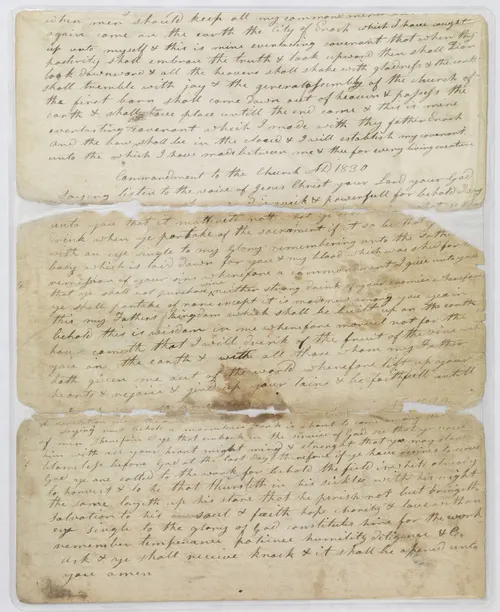 when men should keep all my commandments
again come on the earth the City of Enoch which I have caught
up unto myself & this is mine everlasting covenant that when thy
posterity shall embrace the truth & look upward then shall Zion
look downward & all the heavens shall shake with gladness & the earth
shall tremble with joy & the general assembly of the church of
the first born shall come down out of heaven & possess the
earth & shall have place untill the end come & this is mine
everlasting covenant which I made with thy father Enoch
and the bow shall be in the cloud & I will establish my covenant
unto thee which I have made between me & thee for every living creature
Commandment to the Church AD 1830
Saying listen to the voice of Jesus Christ your Lord your God
is quick & powerfull for behold I say
unto you that it mattereth not
drink when ye partake of the sacrament if it so be that
with an eye single to my glory remembering unto the Father my
body which is laid down for you & my blood which was shed for the
remission of your sins wherefore a commandment I give unto you
that ye shall not purchase wine neither strong drink of your enemies wherefore
ye shall partake of none except it is made new among you yea in
this my Fathers Kingdom which shall be built up on the earth
behold this is wisdom in me wherefore marvel not for the
hour cometh that I will drink of the fruit of the vine with
you on the earth & with all those whom my Father
hath given me out of the world wherefore lift up your
hearts & rejoice & gird up your loins & be faithfull untill
A revelation
saying now behold a marvelous work is about to come
of men therefore O ye that embark in the service of God see that ye serve
him with all your heart might mind & strength that ye may stand
blameless before God at the last day therefore if ye have desires to serve
God ye are called to the work for behold the field is white already
to harvest & lo he that thrusteth in his sickle with his might
the same layeth up in store that he perish not but bringeth
salvation to his soul & faith hope charity & love with an
eye single to the glory of God constitutes him for the work
remember temperance patience humility diligence & C
ask & ye shall receive knock & it shall be opened unto
you amen